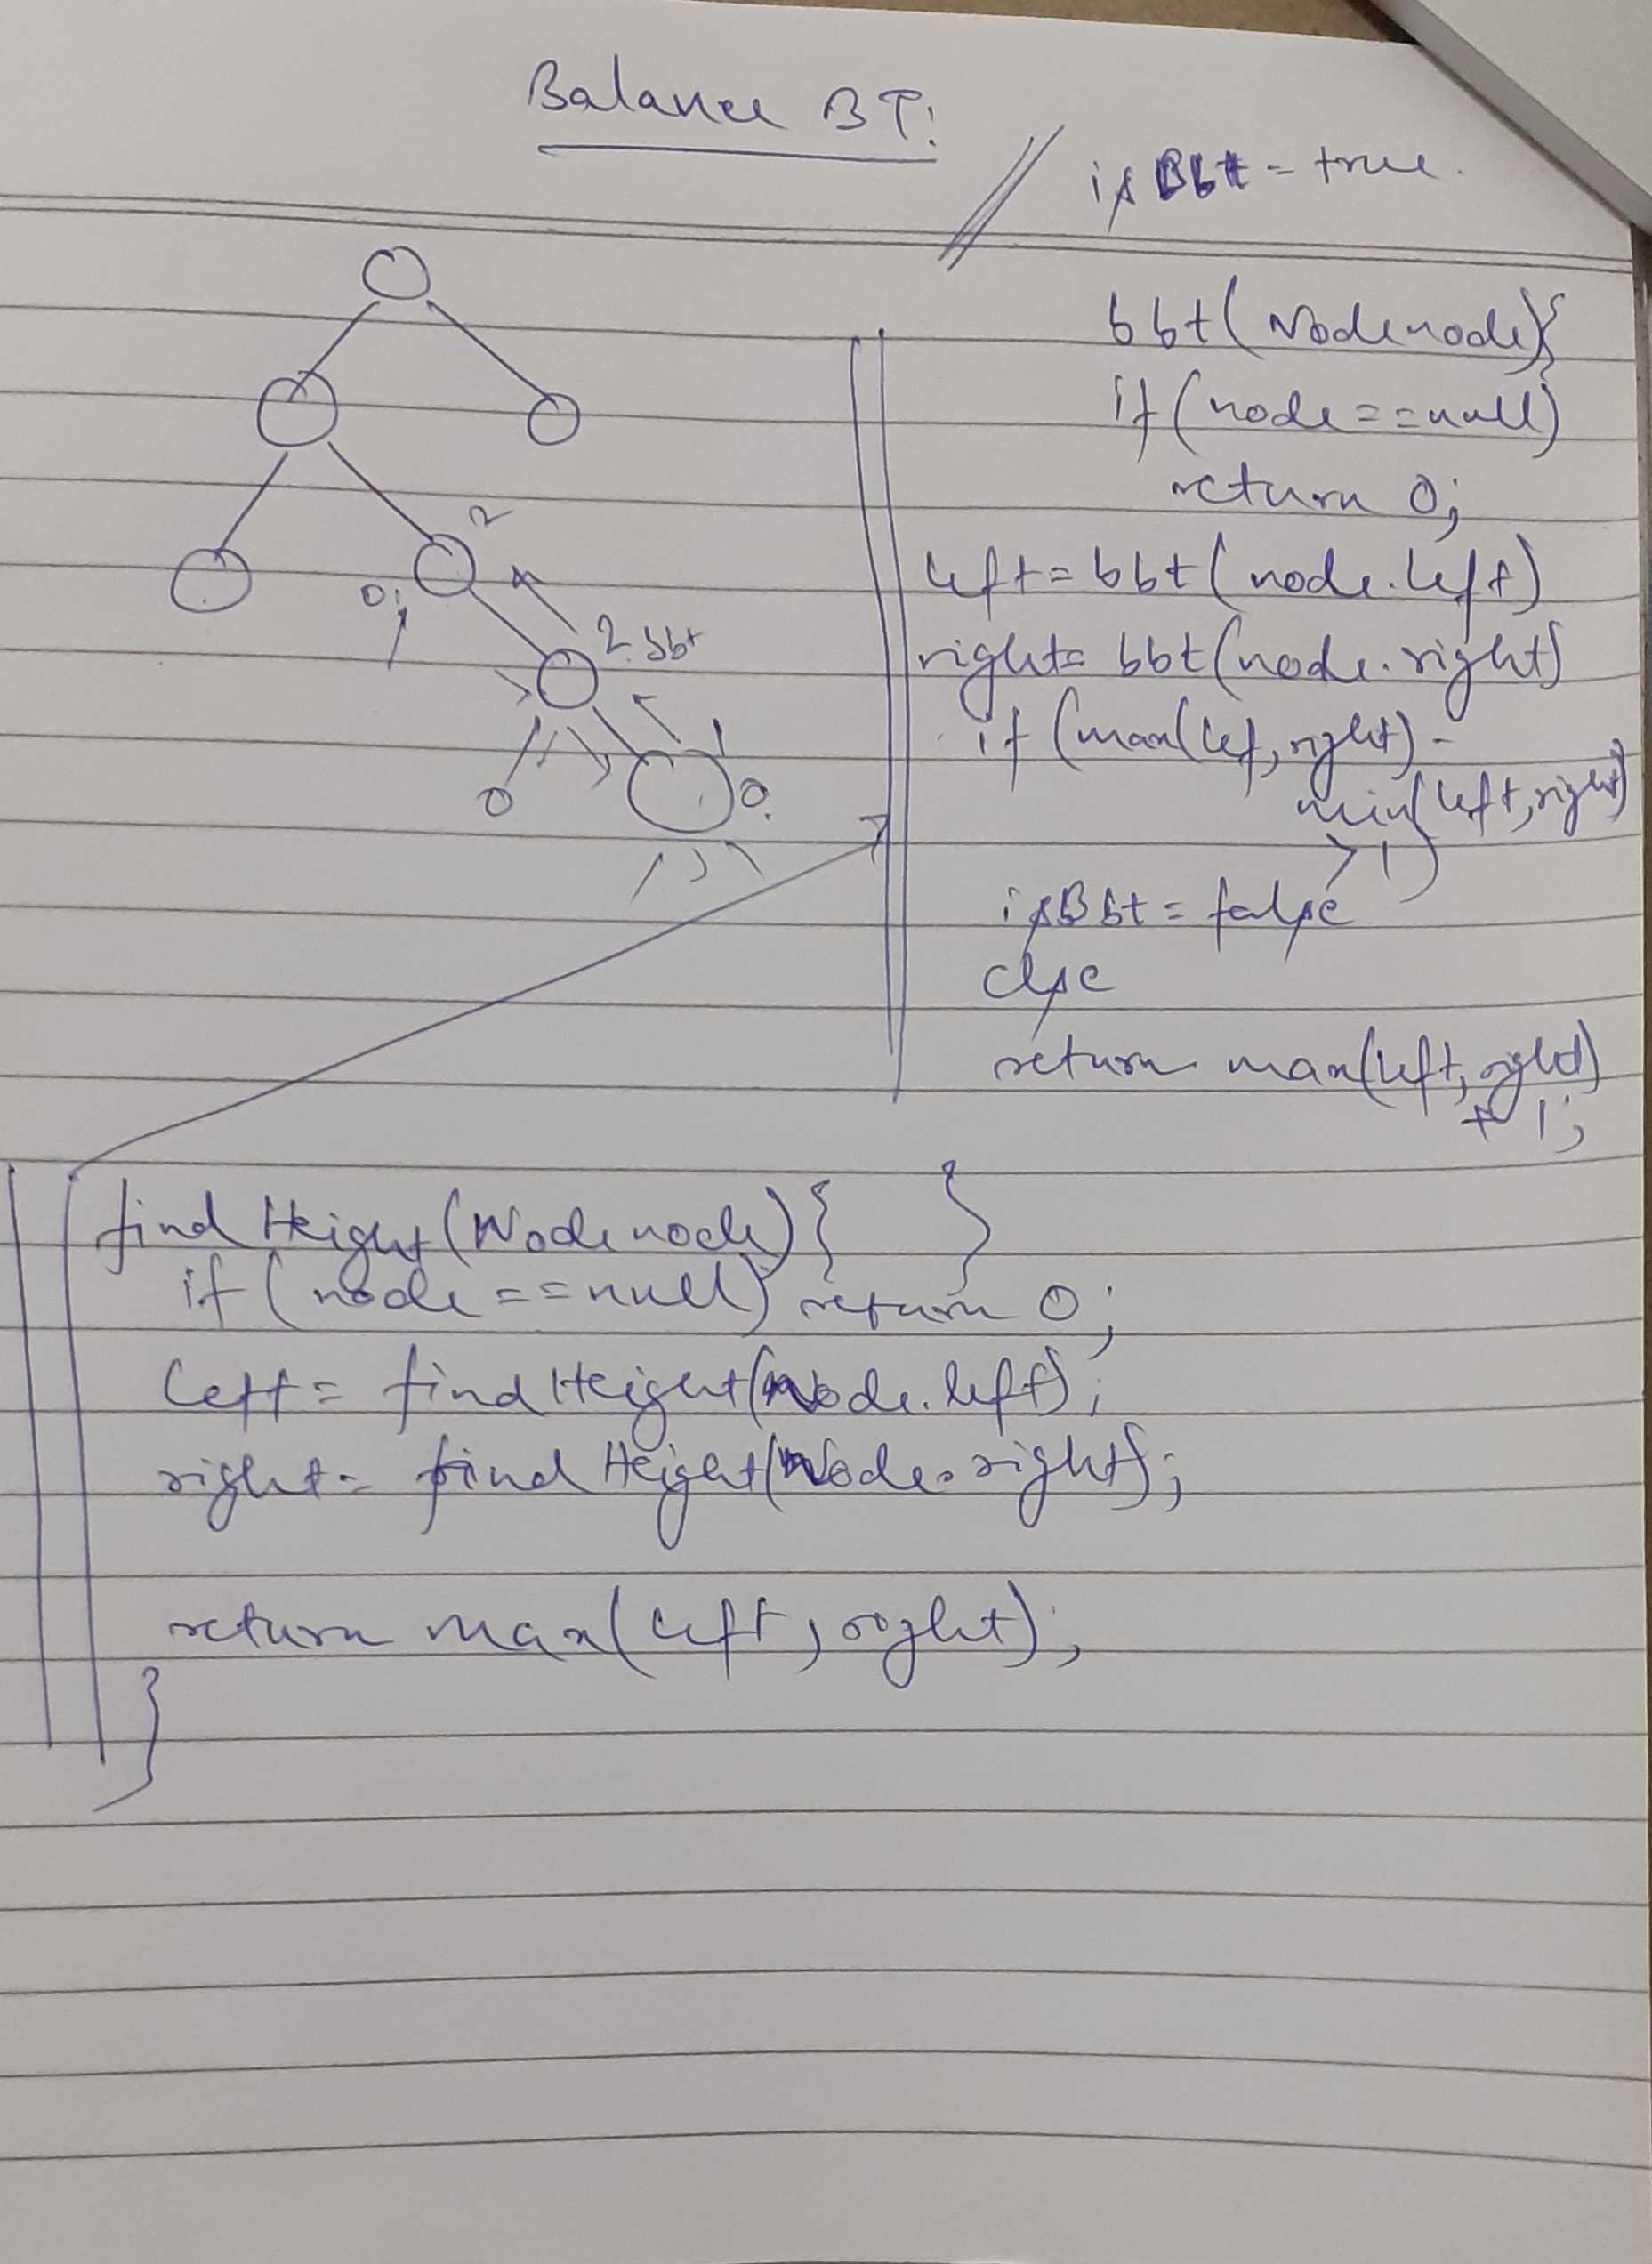 Balance BT:
isBbt = true.
bbt(Node node){
if(node==null)
return 0;
left=bbt(node.left)
right=bbt(node.right)
if(max(lef,right)-
min(left,right)
>1)
isBbt=false
else
return max(left,right)
+1;
}
2
0;
2 bbt
1
0
0.
findHeight(Node node){
if(node==null) return 0;
left= findHeight(Node.left);
right= findHeight(Node.right);
return max(left,right);
}